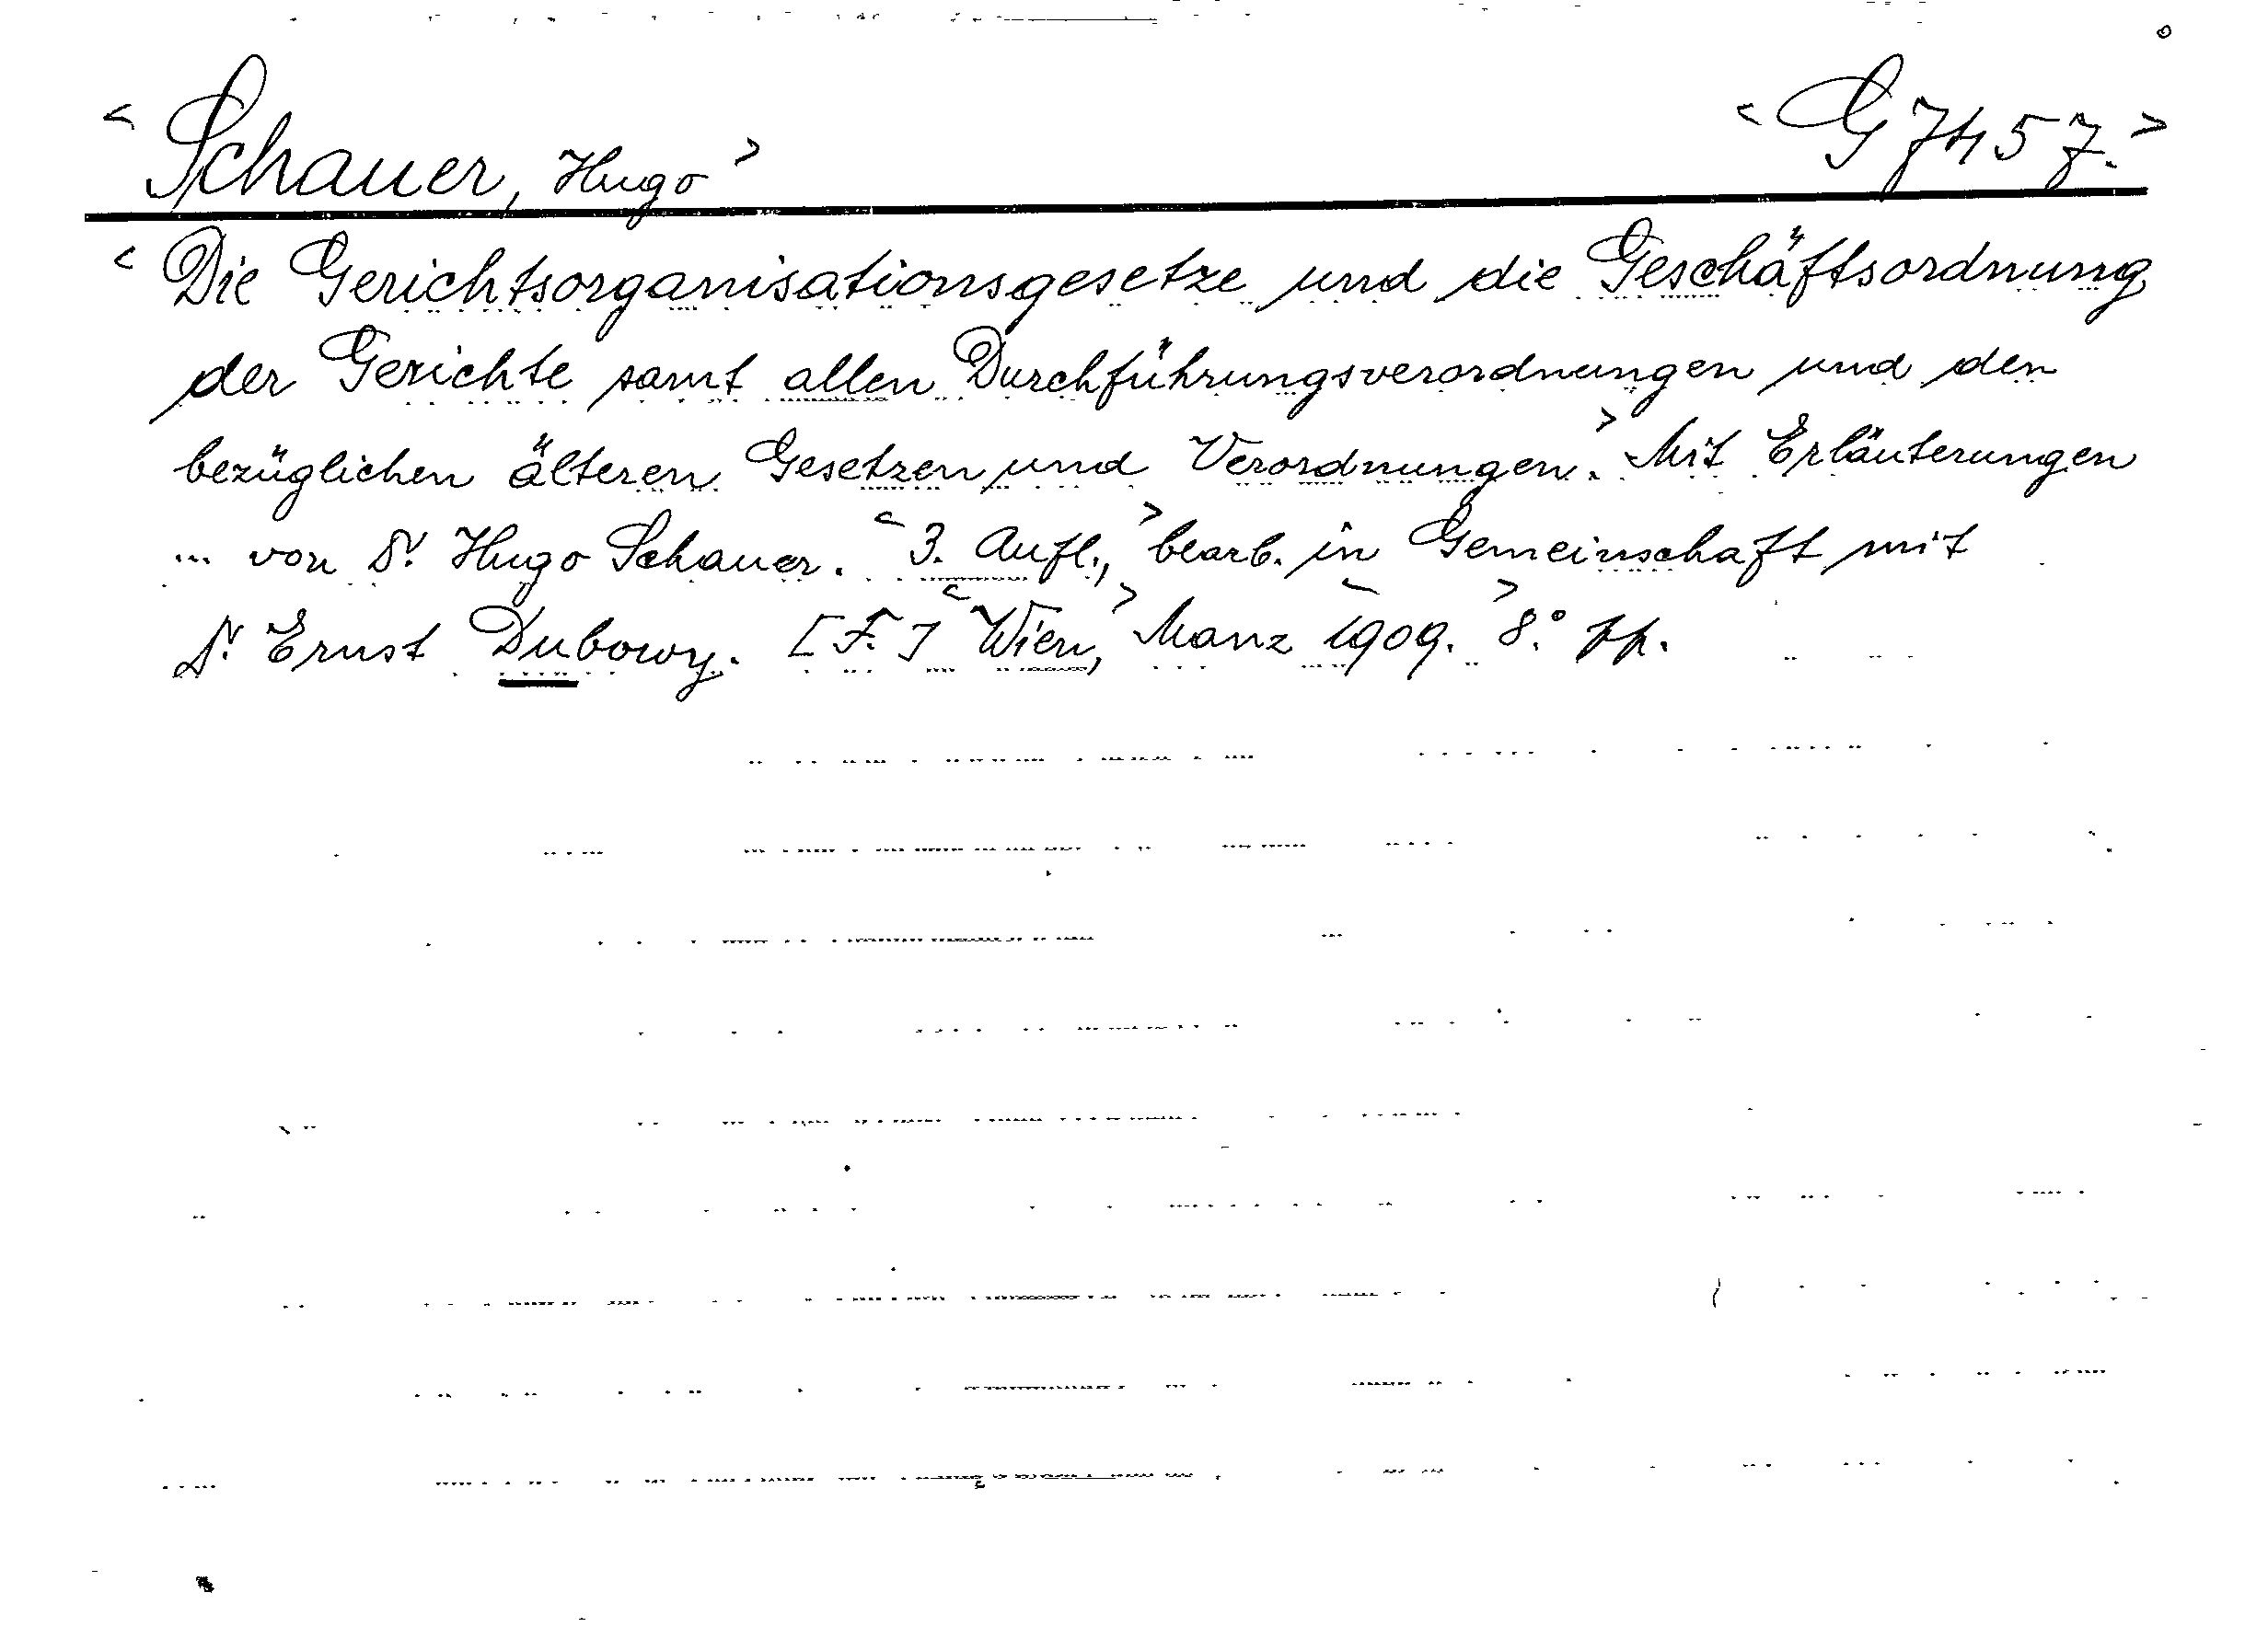 <Schauer, Hugo> <G 7457.>
<Die Gerichtsorganisationsgesetze und die Geschäftsordnung
der Gerichte samt allen Durchführungsverordnungen und den
bezüglichen älteren Gesetzen und Verordnungen.> Mit Erläuterungen
... von Dr. Hugo Schauer. <3. Aufl.,> bearb. in Gemeinschaft mit
Dr. Ernst Dubowy. [F.] <Wien,> Manz <1909.> 8.° pp.